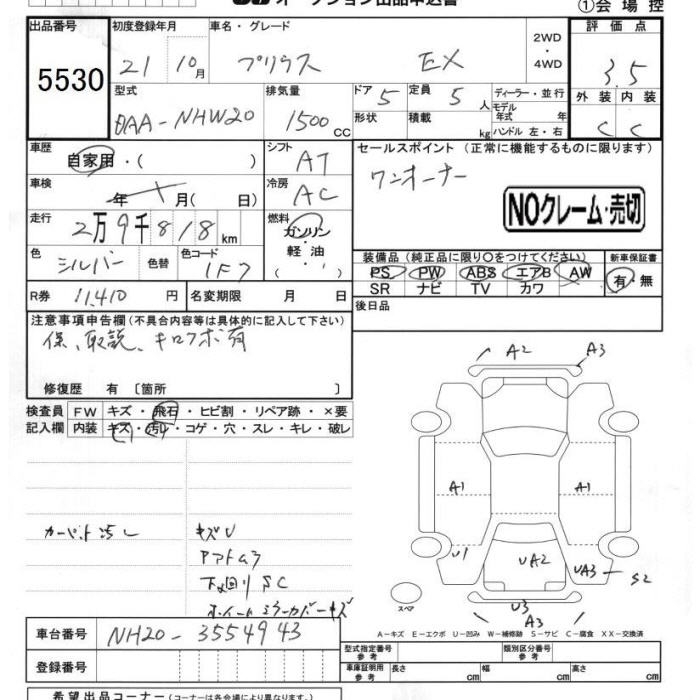 オークション出品申込書
①会場控
出品番号 初度登録年月 車名・グレード 2WD・4WD 評価点
5530 21 10月 プリウス EX 3.5
型式 排気量 ドア 5 定員 5人 ディーラー・並行 外装 内装
DAA-NHW20 1500CC 形状 積載 kg モデル年式 年 ハンドル 左・右 C C
車歴 自家用・( ) シフト AT セールスポイント (正常に機能するものに限ります)
車検 年 月( 日) 冷房 AC ワンオーナー
NOクレーム・売切
走行 2万9千818km 燃料 ガソリン・軽油( )
色 シルバー 色替 色コード 1F7 装備品(純正品に限り○をつけてください) 新車保証書
PS PW ABS エアB AW 有・無
SR ナビ TV カワ
R券 11,410円 名変期限 月 日 後日品
注意事項申告欄(不具合内容等は具体的に記入して下さい)
保、取説、キロフホ有
修復歴 有〔箇所 〕
検査員 FW キズ・飛石・ヒビ割・リペア跡・×要
記入欄 内装 キズ・汚レ・コゲ・穴・スレ・キレ・破レ
A2 A3
A1 A1
U1 UA2 UA3 S2
U3
A3
スペア
カーペット汚レ
キズU
下廻りSC
ホイールミラーカバーキズ
A-キズ E-エクボ U-凹み W-補修跡 S-サビ C-腐食 XX-交換済
車台番号 NH20-3554943
型式指定番号 参考 類別区分番号 参考
登録番号 車庫証明用 参考 長さ cm 幅 cm 高さ cm
希望出品コーナー(コーナーは各会場により異なります)